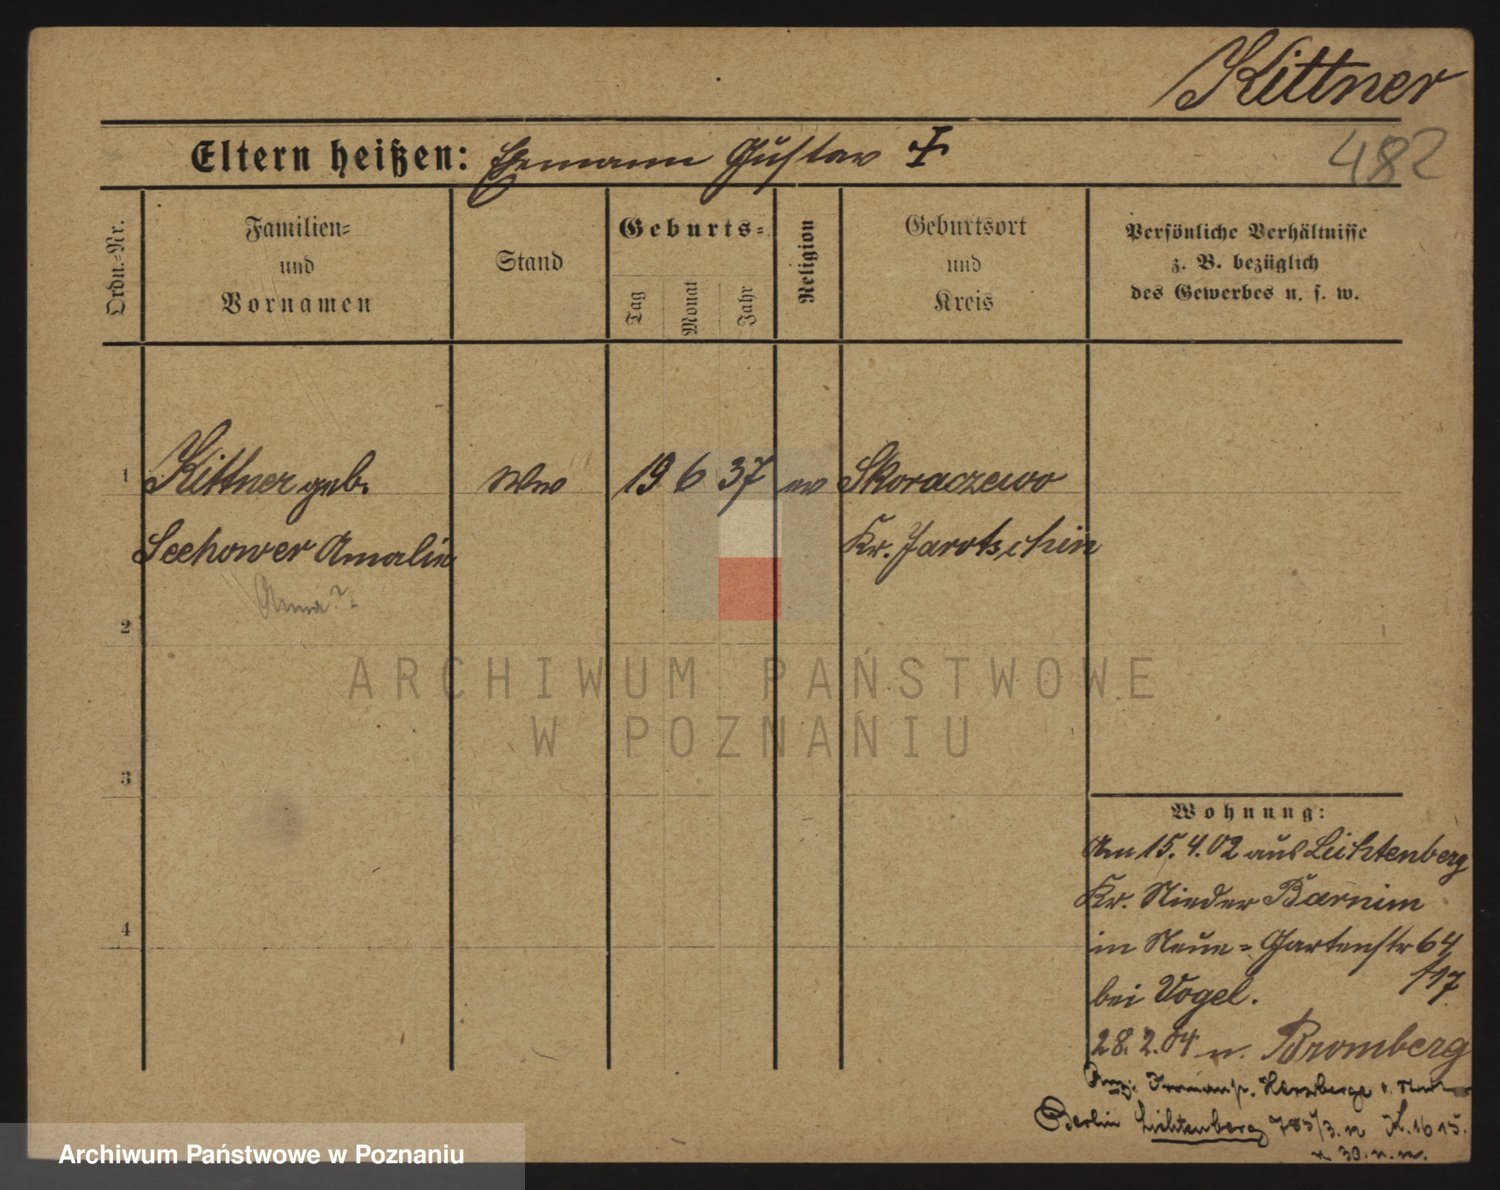 Kittner
482
Eltern heißen: Ehemann Gustav
Ordn.-Nr.
Familien-
und
Vornamen
Stand
Geburts-
Tag
Monat
Jahr
Religion
Geburtsort
und
Kreis
Persönliche Verhältnisse
z. B. bezüglich
des Gewerbes u. s. w.
1 Kittner geb. Ww 19 6 37 ev Skoraczewo
Seehower Amalie Kr. Jarotschin
Anna?
2
ARCHIWUM PAŃSTWOWE
W POZNANIU
3
4
Wohnung:
Am 15.4.02 aus Lichtenberg
Kr. Nieder Barnim
in Neue-Gartenstr 64
bei Vogel. 117
28.2.04 n. Bromberg
Herzberge
Berlin Lichtenberg
Archiwum Państwowe w Poznaniu